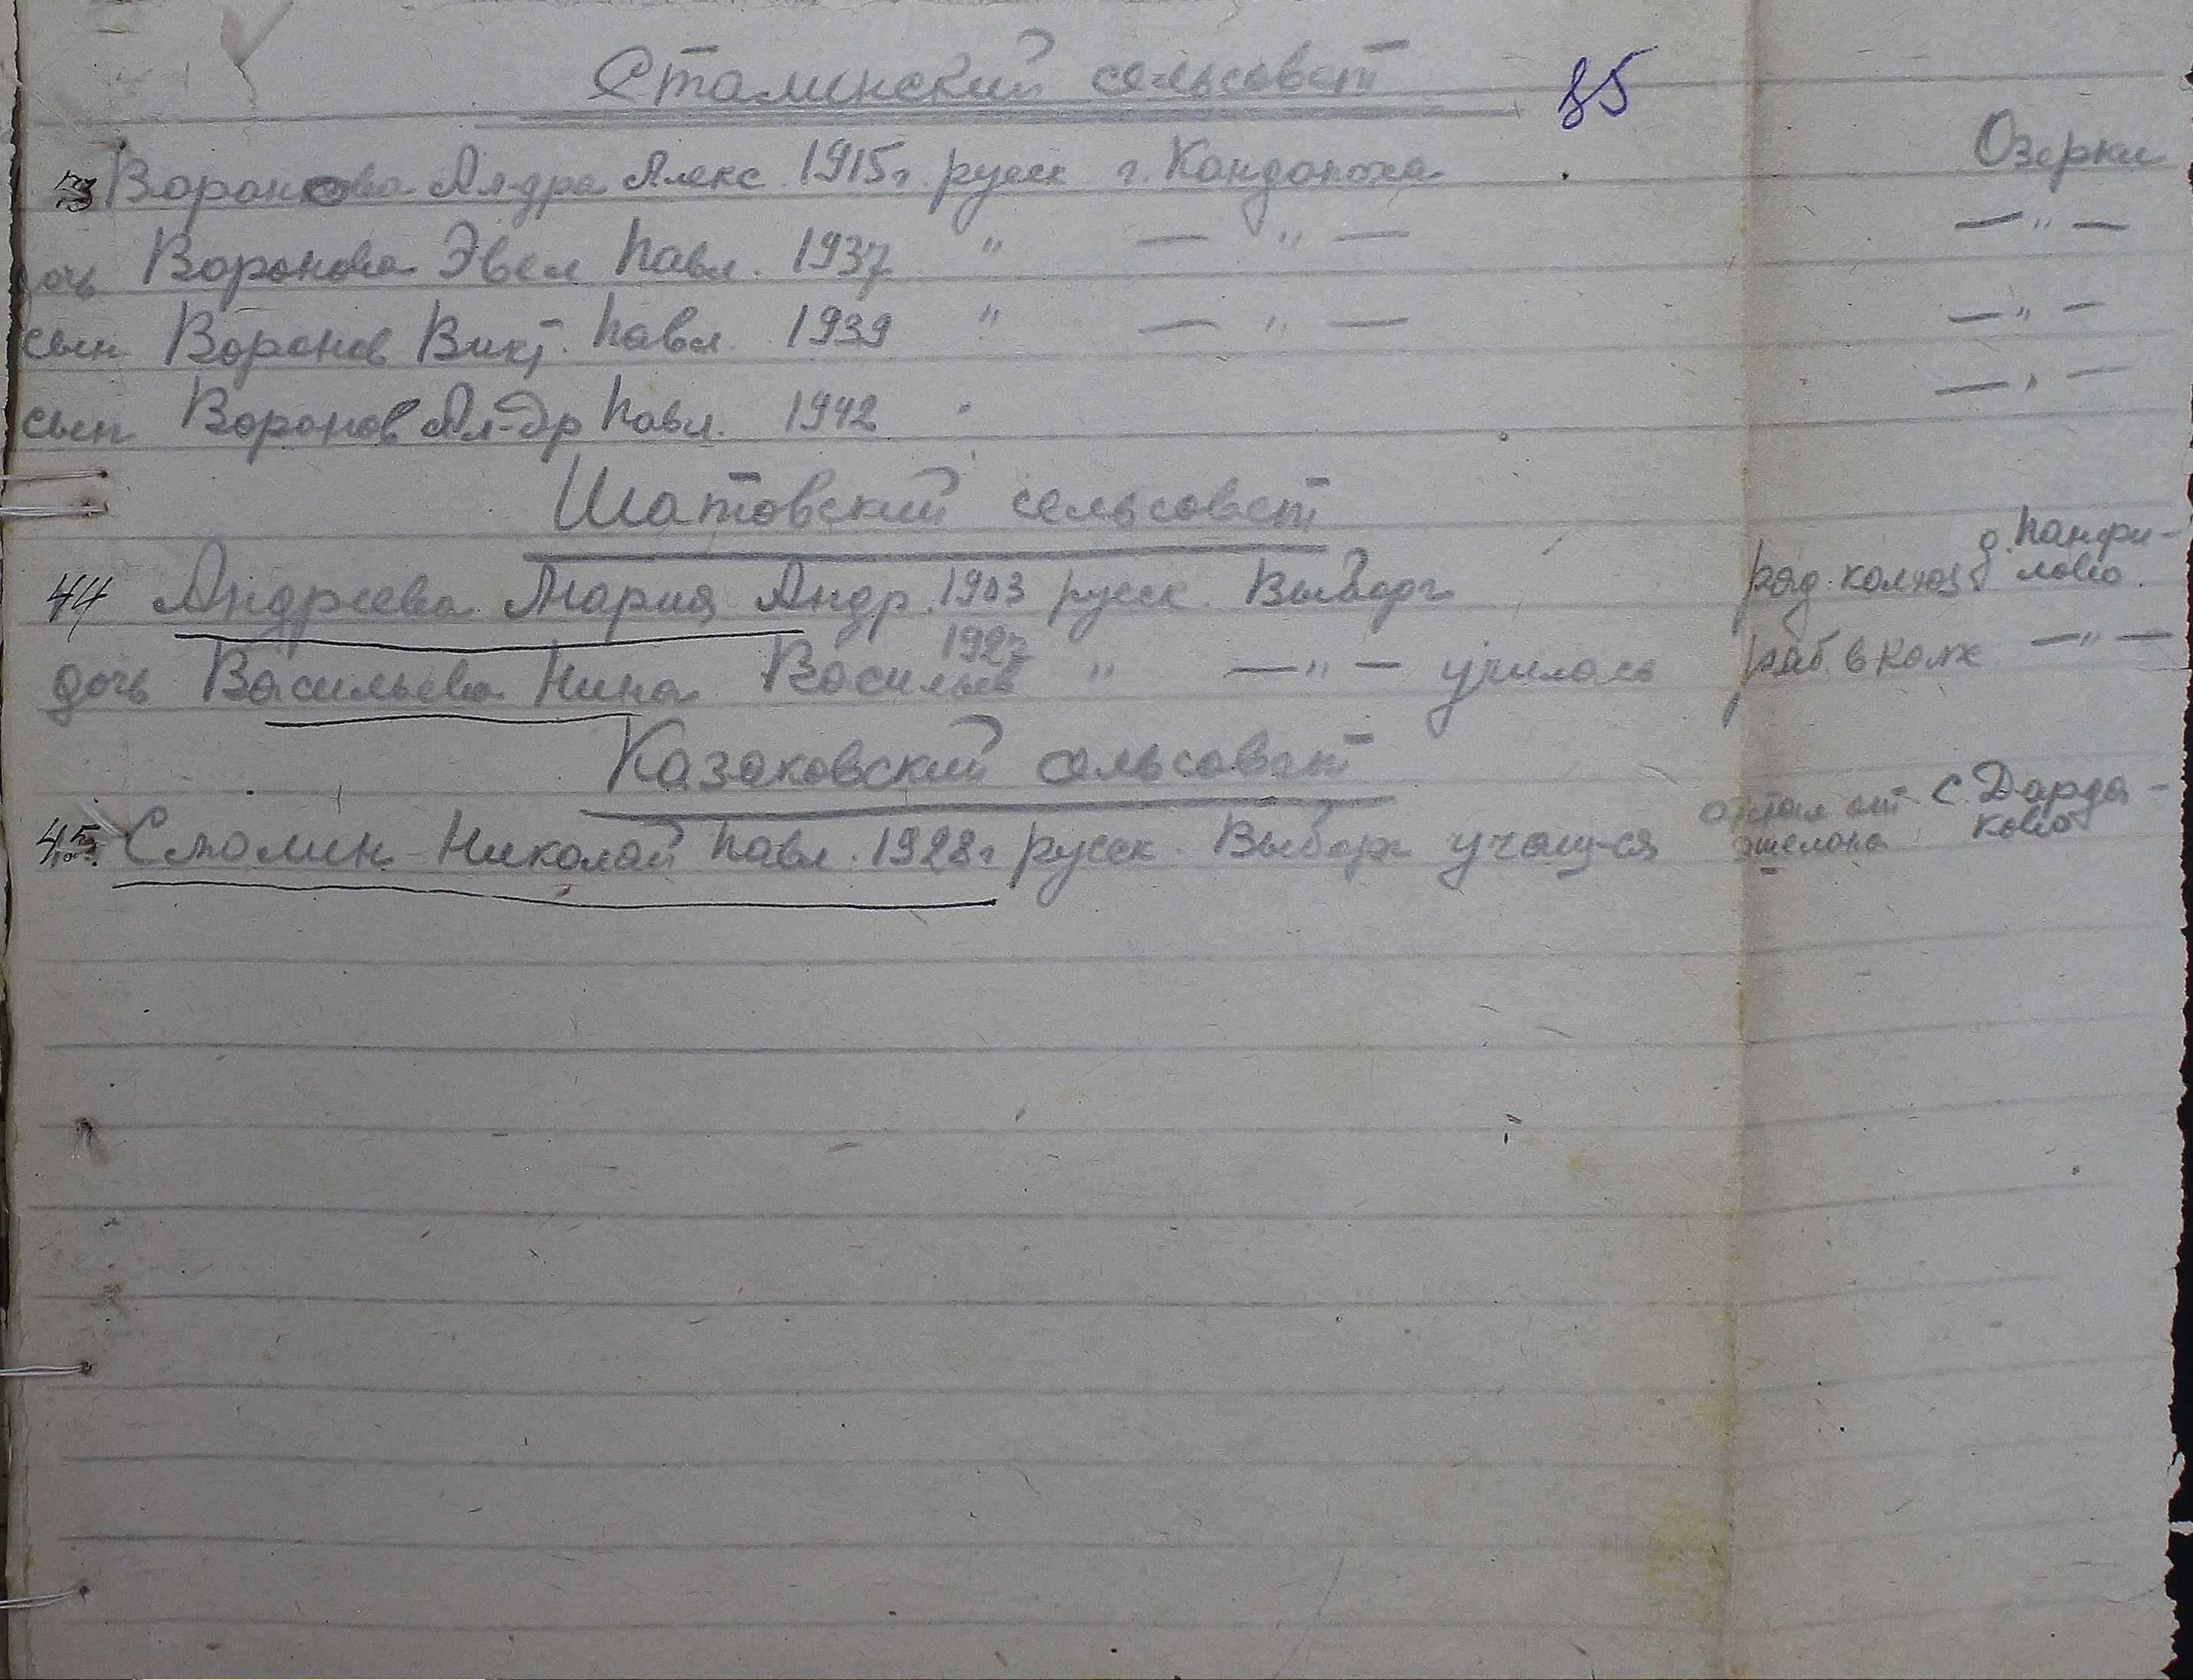 Сталинский сельсовет 85
Воронова Ал-дра Алекс 1915 г. русск г. Кандопога Озерки
дочь Воронова Эвел Павл. 1937 " — " — — " —
сын Воронов Викт. Павл. 1939 " — " — — " —
сын Воронов Ал-др Павл. 1942 " — " —
Шатовский сельсовет
44 Андреева Мария Андр. 1903 русск Выборг ряд. колхоз д. Панфи-
лово.
дочь Васильева Нина Васильев 1927 " — " — училась раб. в колх — " —
Казаковский сельсовет
45. Столин Николай Павл. 1928 г русск. Выборг учащ-ся отстал от эшелона с. Дарда-
ково